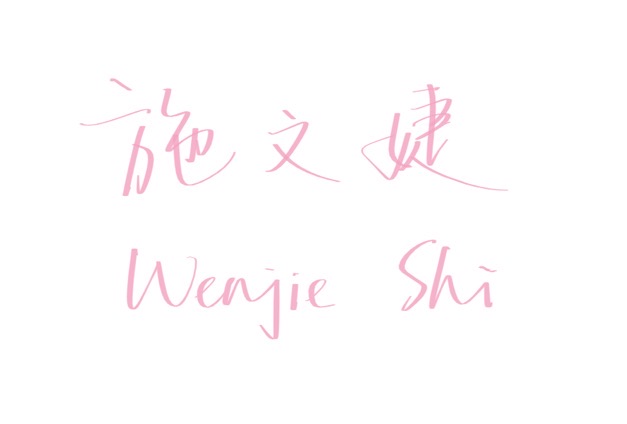 施文婕
Wenjie Shi